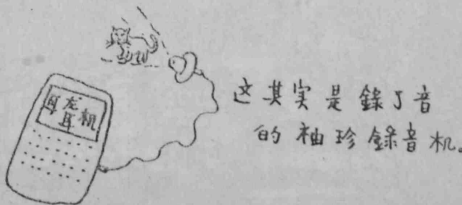 耳聋
耳机
这其实是錄了音
的袖珍錄音机。